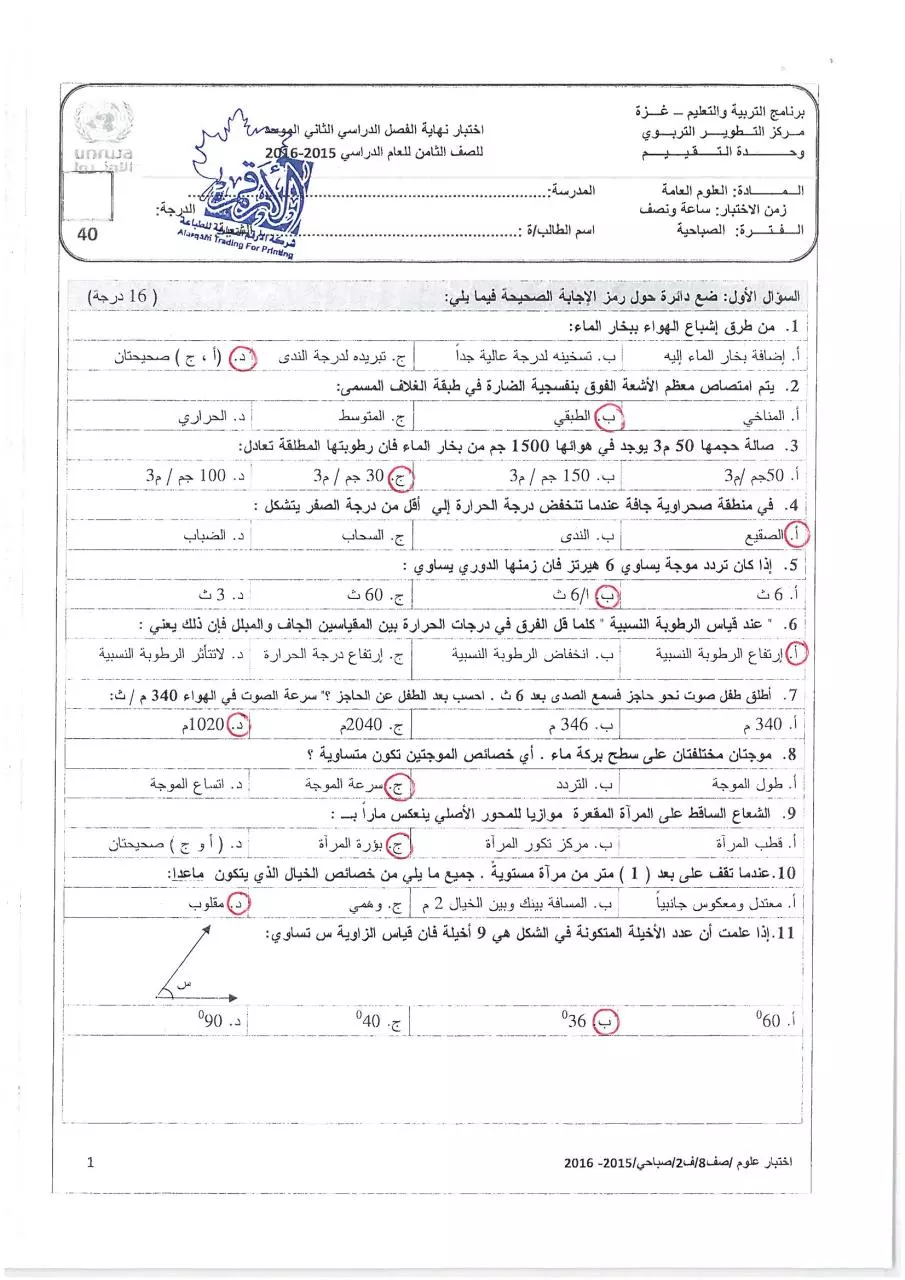 برنامج التربية والتعليم – غزة
مركز التطوير التربوي
وحدة التقييم
اختبار نهاية الفصل الدراسي الثاني الموحد
للصف الثامن للعام الدراسي 2015-2016
unrwa
الأونروا
المادة: العلوم العامة
المدرسة:
زمن الاختبار: ساعة ونصف
الدرجة:
الفترة: الصباحية
اسم الطالب/ة :
40
الأرقم
شركة الأرقم التجارية للطباعة
Alarqam Trading For Printing
السؤال الأول: ضع دائرة حول رمز الإجابة الصحيحة فيما يلي: ( 16 درجة)
1. من طرق إشباع الهواء ببخار الماء:
أ. إضافة بخار الماء إليه ب. تسخينه لدرجة عالية جداً ج. تبريده لدرجة الندى د. (أ ، ج ) صحيحتان
2. يتم امتصاص معظم الأشعة الفوق بنفسجية الضارة في طبقة الغلاف المسمى:
أ. المناخي ب. الطبقي ج. المتوسط د. الحراري
3. صالة حجمها 50 م3 يوجد في هوائها 1500 جم من بخار الماء فان رطوبتها المطلقة تعادل:
أ. 50جم /م3 ب. 150 جم / م3 ج. 30 جم / م3 د. 100 جم / م3
4. في منطقة صحراوية جافة عندما تنخفض درجة الحرارة إلي أقل من درجة الصفر يتشكل :
أ. الصقيع ب. الندى ج. السحاب د. الضباب
5. إذا كان تردد موجة يساوي 6 هيرتز فان زمنها الدوري يساوي :
أ. 6 ث ب. 6/1 ث ج. 60 ث د. 3 ث
6. " عند قياس الرطوبة النسبية " كلما قل الفرق في درجات الحرارة بين المقياسين الجاف والمبلل فإن ذلك يعني :
أ. إرتفاع الرطوبة النسبية ب. انخفاض الرطوبة النسبية ج. إرتفاع درجة الحرارة د. لاتتأثر الرطوبة النسبية
7. أطلق طفل صوت نحو حاجز فسمع الصدى بعد 6 ث . احسب بعد الطفل عن الحاجز ؟" سرعة الصوت في الهواء 340 م / ث:
أ. 340 م ب. 346 م ج. 2040م د. 1020م
8. موجتان مختلفتان على سطح بركة ماء . أي خصائص الموجتين تكون متساوية ؟
أ. طول الموجة ب. التردد ج. سرعة الموجة د. اتساع الموجة
9. الشعاع الساقط على المرآة المقعرة موازيا للمحور الأصلي ينعكس ماراً بـ :
أ. قطب المرآة ب. مركز تكور المرآة ج. بؤرة المرآة د. ( أ و ج ) صحيحتان
10.عندما تقف على بعد ( 1 ) متر من مرآة مستوية . جميع ما يلي من خصائص الخيال الذي يتكون ماعدا:
أ. معتدل ومعكوس جانبياً ب. المسافة بينك وبين الخيال 2 م ج. وهمي د. مقلوب
11.إذا علمت أن عدد الأخيلة المتكونة في الشكل هي 9 أخيلة فان قياس الزاوية س تساوي:
س
أ. 60⁰ ب. 36⁰ ج. 40⁰ د. 90⁰
اختبار علوم /صف8/ف2/صباحي/2015- 2016
1